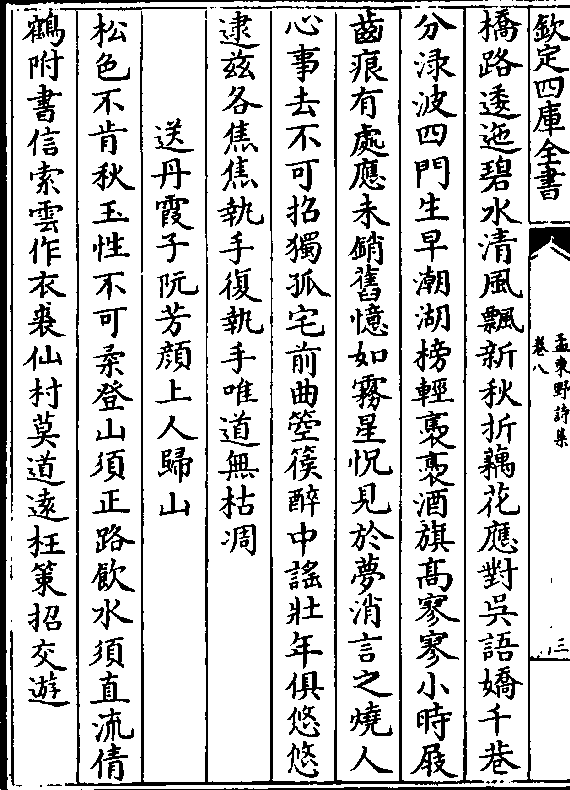 欽定四庫全書
孟東野詩集
卷八
三
橋路逶迤碧水清風飄新秋折藕花應對吳語嬌千巷
分淥波四門生早潮湖榜輕褭褭酒旗髙寥寥小時屐
齒痕有處應未銷舊憶如霧星怳見於夢消言之燒人
心事去不可招獨孤宅前曲箜篌醉中謡壯年俱悠悠
逮兹各焦焦執手復執手唯道無枯凋
送丹霞子阮芳顔上人歸山
松色不肯秋玉性不可柔登山須正路飲水須直流倩
鶴附書信索雲作衣裘仙村莫道逺枉策招交遊